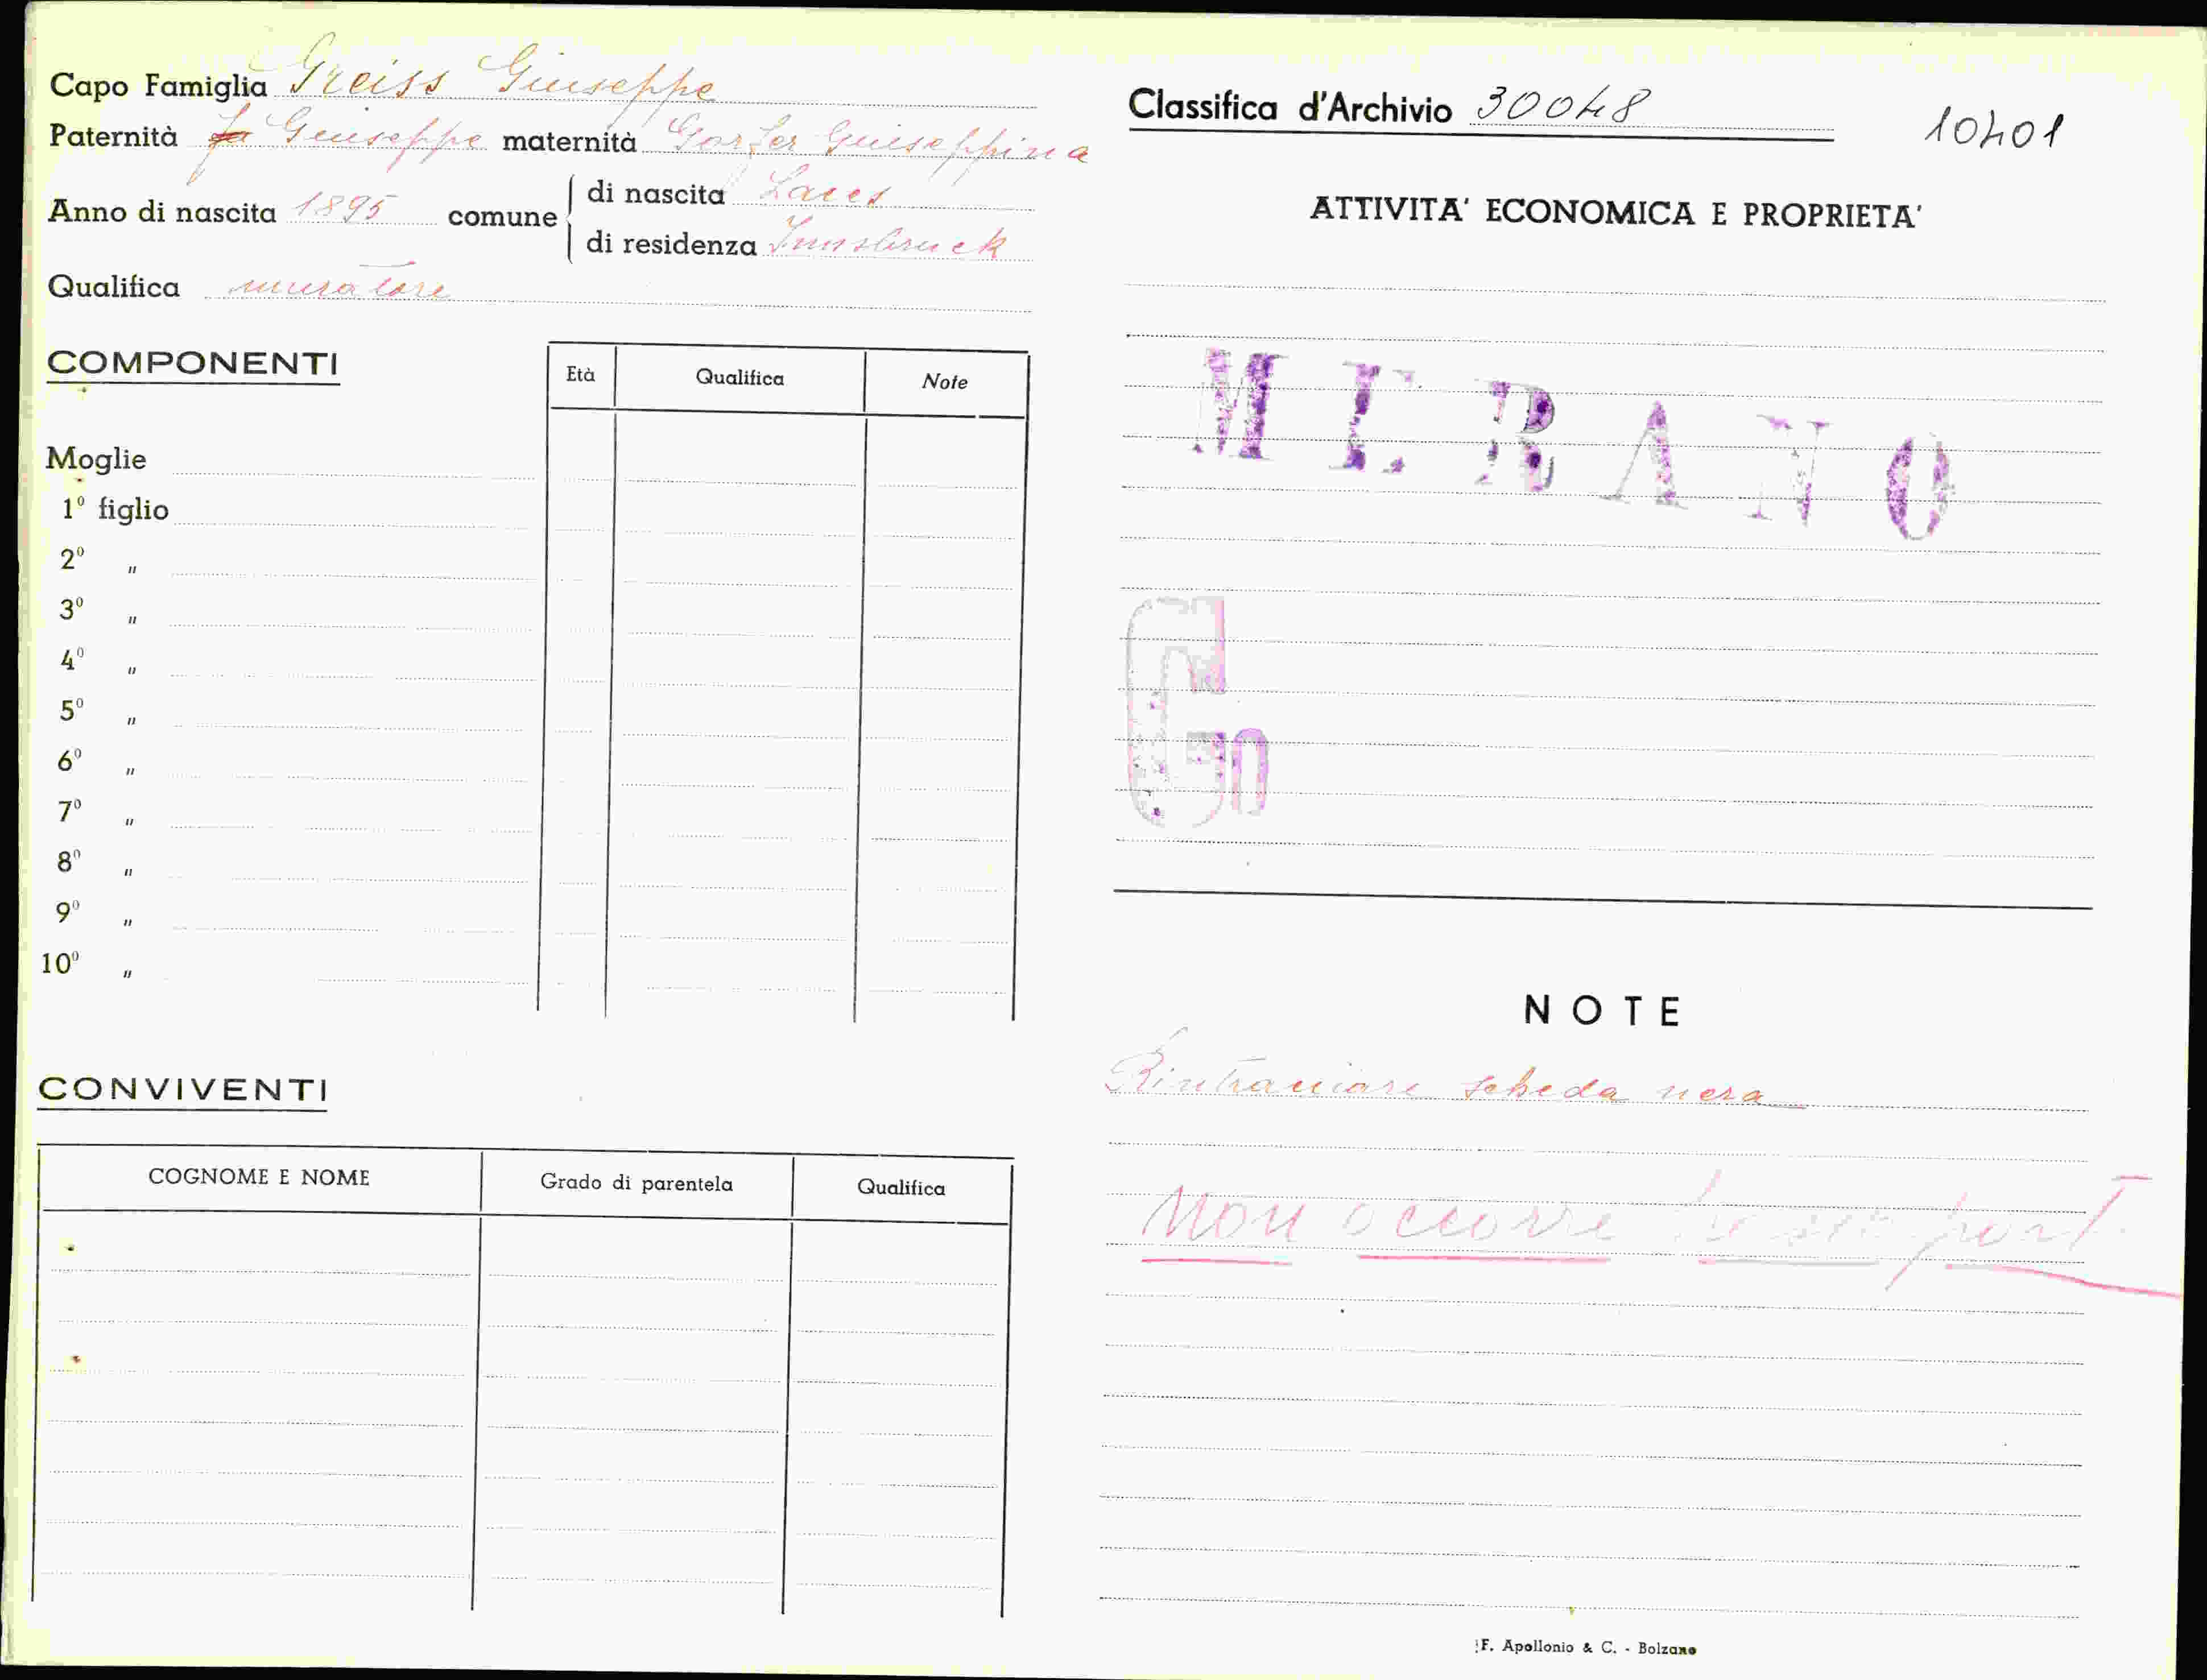 Capo Famiglia Greiss Giuseppe
Paternità fu Giuseppe maternità Gorfer Giuseppina
Anno di nascita 1895 comune
di nascita Laces
di residenza Innsbruck
Qualifica muratore
COMPONENTI
Età Qualifica Note
Moglie
1º figlio
2º "
3º "
4º "
5º "
6º "
7º "
8º "
9º "
10º "
CONVIVENTI
COGNOME E NOME Grado di parentela Qualifica
Classifica d'Archivio 30048
10401
ATTIVITA' ECONOMICA E PROPRIETA'
MERANO
Gn
NOTE
Rintracciare scheda nera
Non occorre
F. Apollonio & C. - Bolzano